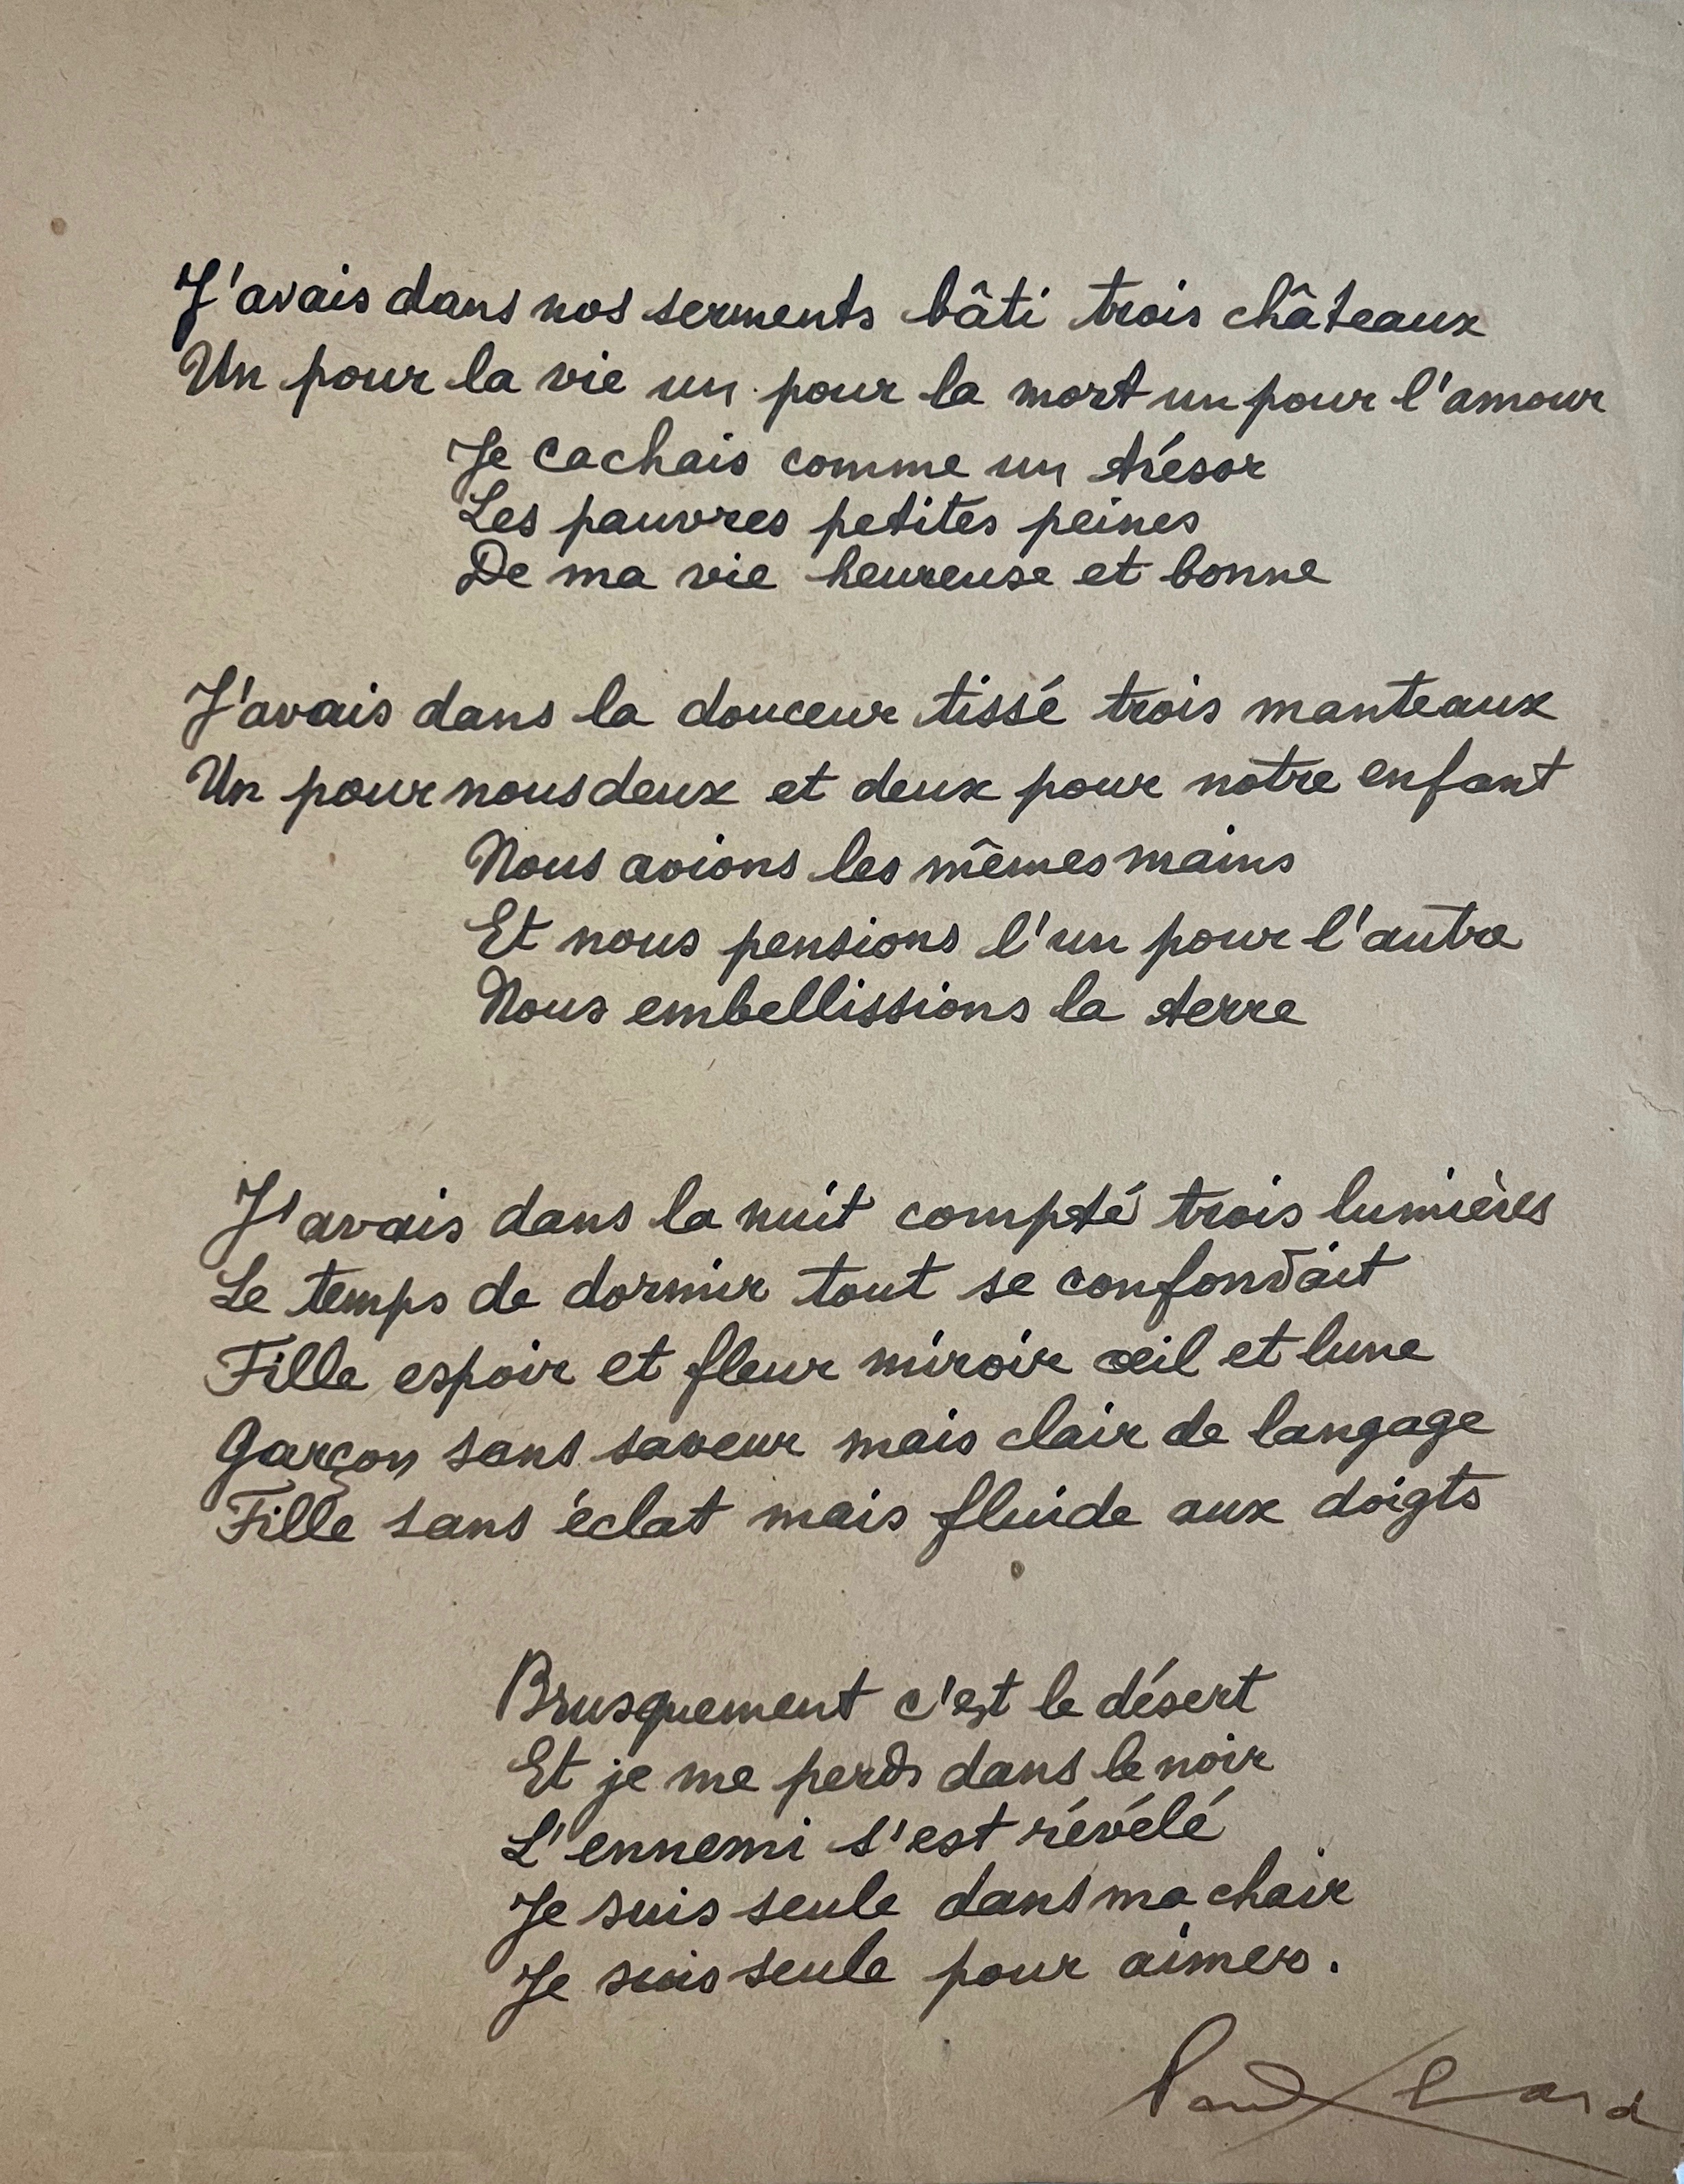 J'avais dans nos serments bâti trois châteaux
Un pour la vie un pour la mort un pour l'amour
Je cachais comme un trésor
Les pauvres petites peines
De ma vie heureuse et bonne
J'avais dans la douceur tissé trois manteaux
Un pour nous deux et deux pour notre enfant
Nous avions les mêmes mains
Et nous pensions l'un pour l'autre
Nous embellissions la terre
J'avais dans la nuit compté trois lumières
Le temps de dormir tout se confondait
Fille espoir et fleur miroir œil et lune
Garçon sans saveur mais clair de langage
Fille sans éclat mais fluide aux doigts
Brusquement c'est le désert
Et je me perds dans le noir
L'ennemi s'est révélé
Je suis seule dans ma chair
Je suis seule pour aimer.
Paul Eluard